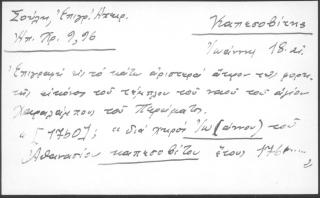 Σούλη, Ἐπιγρ. Ἠπειρ.
Ἠπ. Χρ. 9,96
Καπεσοβίτης
Ἰωάννης 18. αἰ.
Ἐπιγραφὴ εἰς τὸ κάτω ἀριστερὰ ἄκρον τῆς φορη-
τῆς εἰκόνος τοῦ τέμπλου τοῦ ναοῦ τοῦ ἁγίου
Χαραλάμπους τοῦ Περάματος.
"[1760]; "διὰ χειρὸς Ἰω[άννου] τοῦ
Ἀθανασίου καπεσοβίτου ἔτους 176......